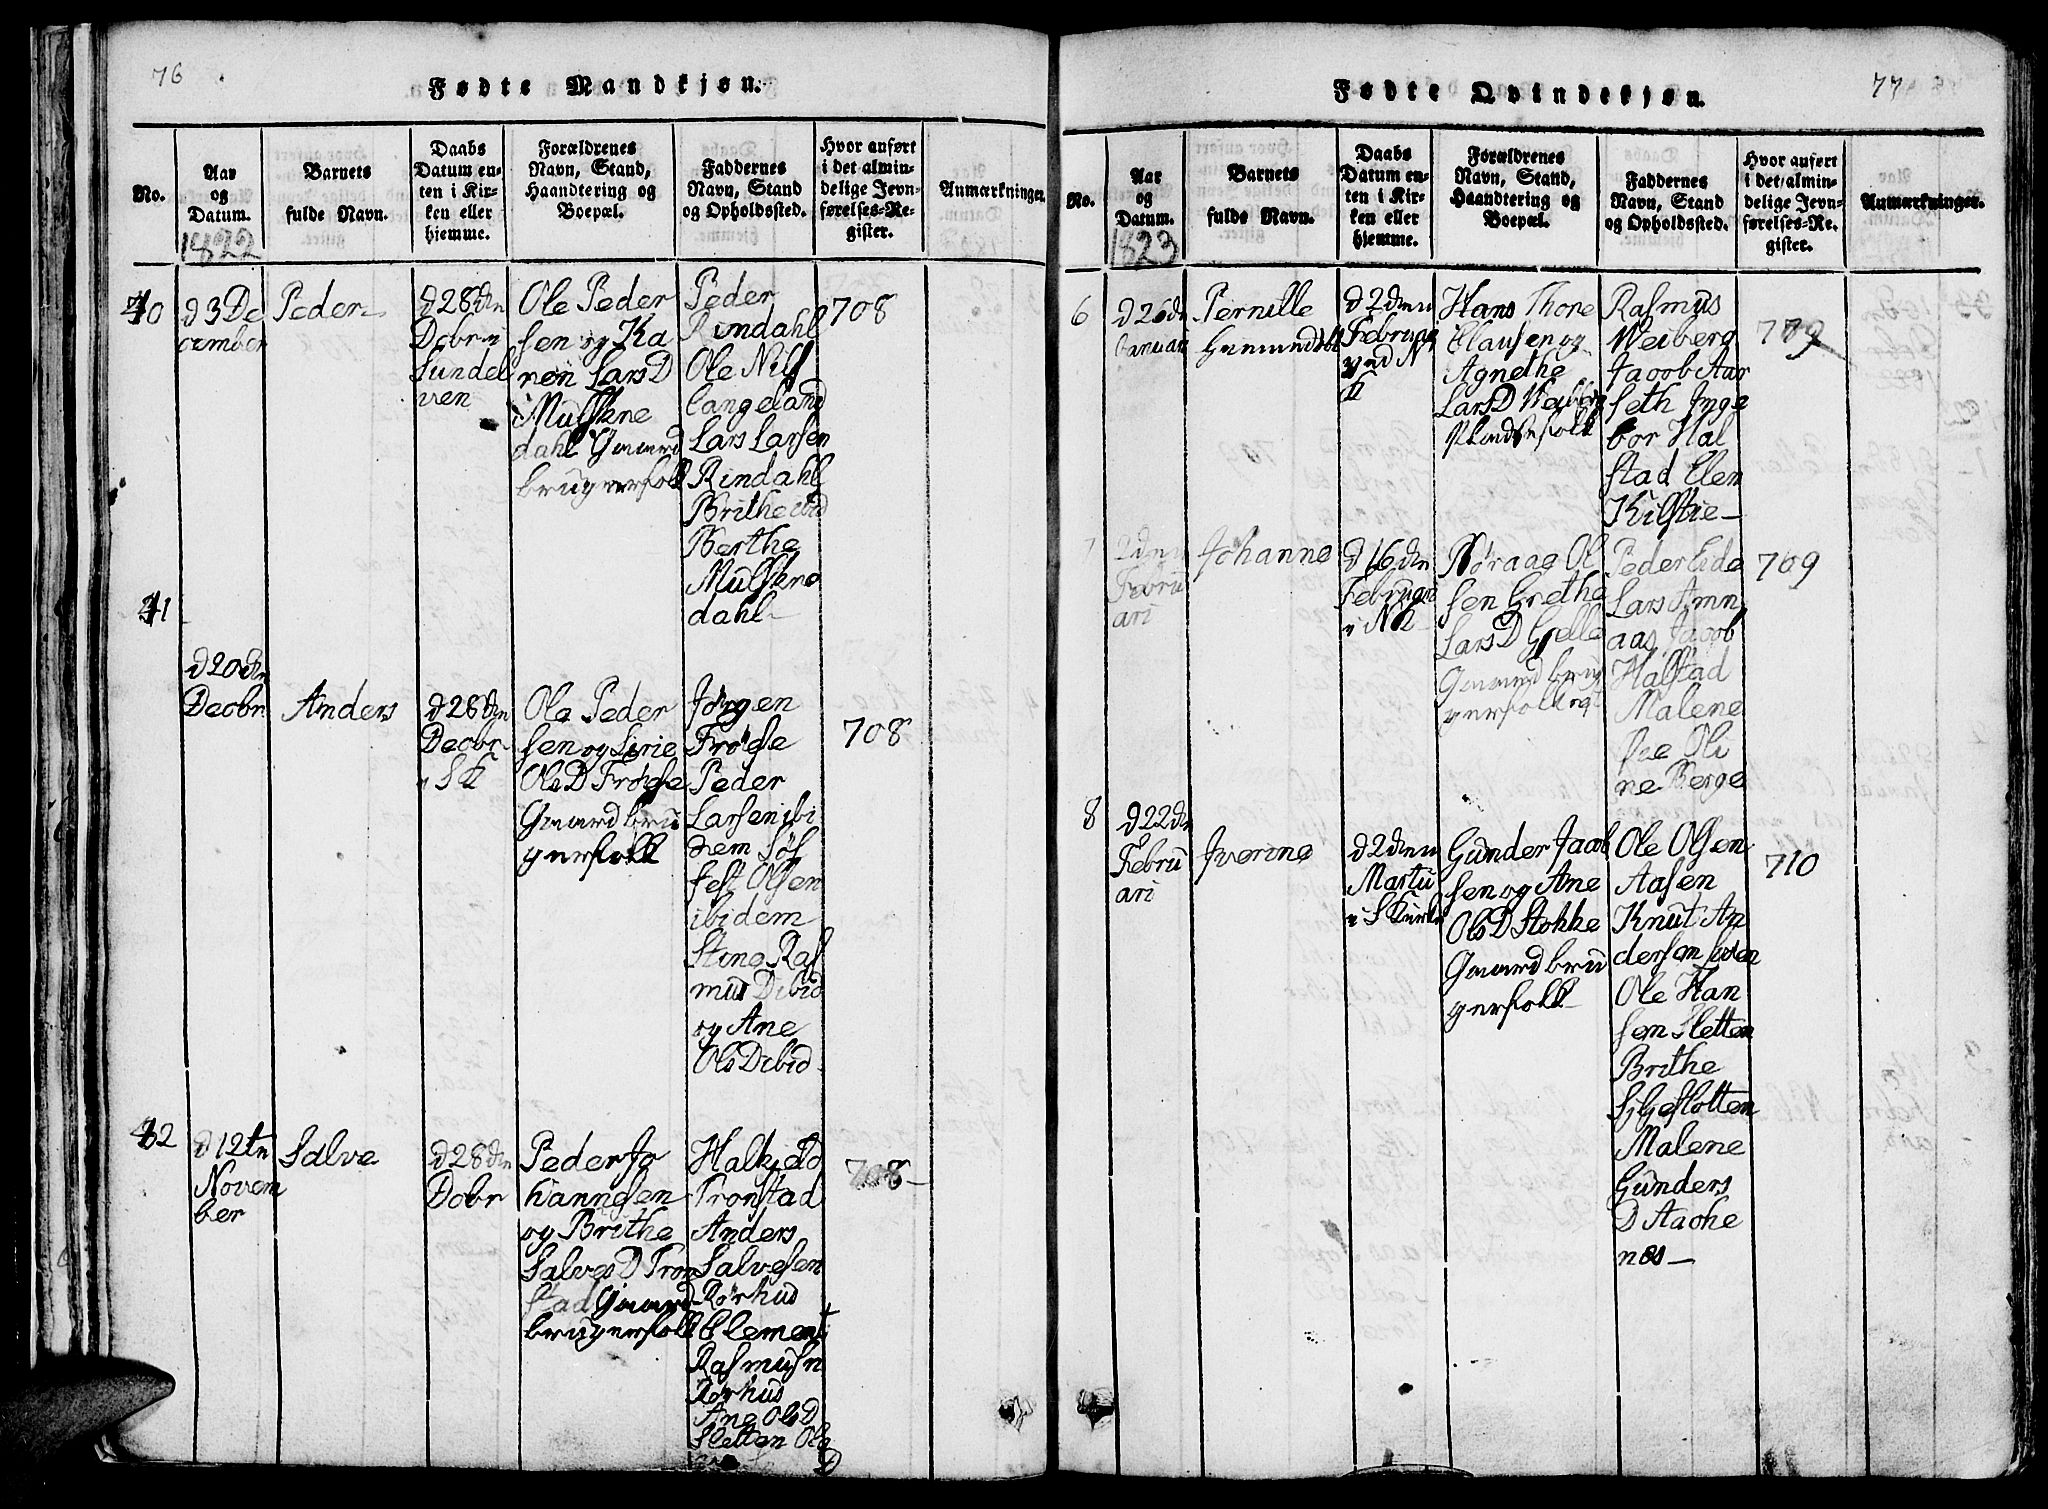 76
Fødte Mandkjøn.
No.
Aar
og
Datum.
1822
Barnets
fulde Navn.
Daabs
Datum en-
ten i Kir-
ken eller
hjemme.
Forældrenes
Navn, Stand,
Haandtering og
Boepæl.
Faddernes
Navn, Stand
og Opholdssted.
Hvor anført
i det almin-
delige Jevn-
førelses-Re-
gister.
Anmærkninger.
40
d 3 De
cember
Peder
d 28 dn
Debr i
Sundel
ven
Ole Peder
sen og Ka
ren Lars D
dahl Gaard
brugerfolk
Peder
Rindahl
Ole Nils
Langeland
Lars Larsen
Rindahl
Brithe ibid
Berthe
dahl
708
41
d 20 dn
Decbr
Anders
d 28 dn
Decbr
i S K
Ole Peder
sen og Sirie
Ols D Frøise
Gaard bru
gerfolk
Jørgen
Frøise
Peder
Larsen ibi
dem Jös
fest Olsen
ibidem
Stine Ras
mus D ibid
og Ane
Ols D ibid
708
42
d 12 tn
Novem
ber
Salve
d 28 dn
Debr
Peder Jo
hannesen
og Brithe
Salves D Tron
stad Gaard
brugerfolk
Tronstad
Anders
Salvesen
Rørhus
Clement
Rasmusn
Rørhus
Ane Ols D
Sletten Ole
D
708
77
Fødte Qvindekjøn.
No.
Aar
og
Datum.
1823
Barnets
fulde Navn.
Daabs
Datum en-
ten i Kir-
ken eller
hjemme.
Forældrenes
Navn, Stand,
Haandtering og
Boepæl.
Faddernes
Navn, Stand
og Opholdssted.
Hvor anført
i det almin-
delige Jevn-
førelses-Re-
gister.
Anmærkninger.
6
d 26 dn
Januari
Pernille
d 2 den
Februar
Hans Thore
Clausen og
Agnethe
Lars D Weiberg
Pladsefolk
Rasmus
Weiberg
Jacob Aar
seth Inge
bor Hal
stad Elen
Kilstie
709
7
2 den
Febru
ari
Johanne
d 16 dn
Februari
i N K
Nøraae Ol
sen Grethe
Lars D
Gaard bru
gerfolk
Peder Eide
Lars Amn
aas Jacob
Halstad
Malene
Øie Oli
ne Berge
709
8
d 22 dn
Febru
ari
Iverine
d 2 den
Marti
i S Kirke
Gunder Jacob
sen og Ane
Ols D Stokke
Gaard bru
gerfolk
Ole Olsen
Aasen
Knut An
dersen
Ole Han
sen Sletten
Brithe
Malene
Gunders
D
nes
710